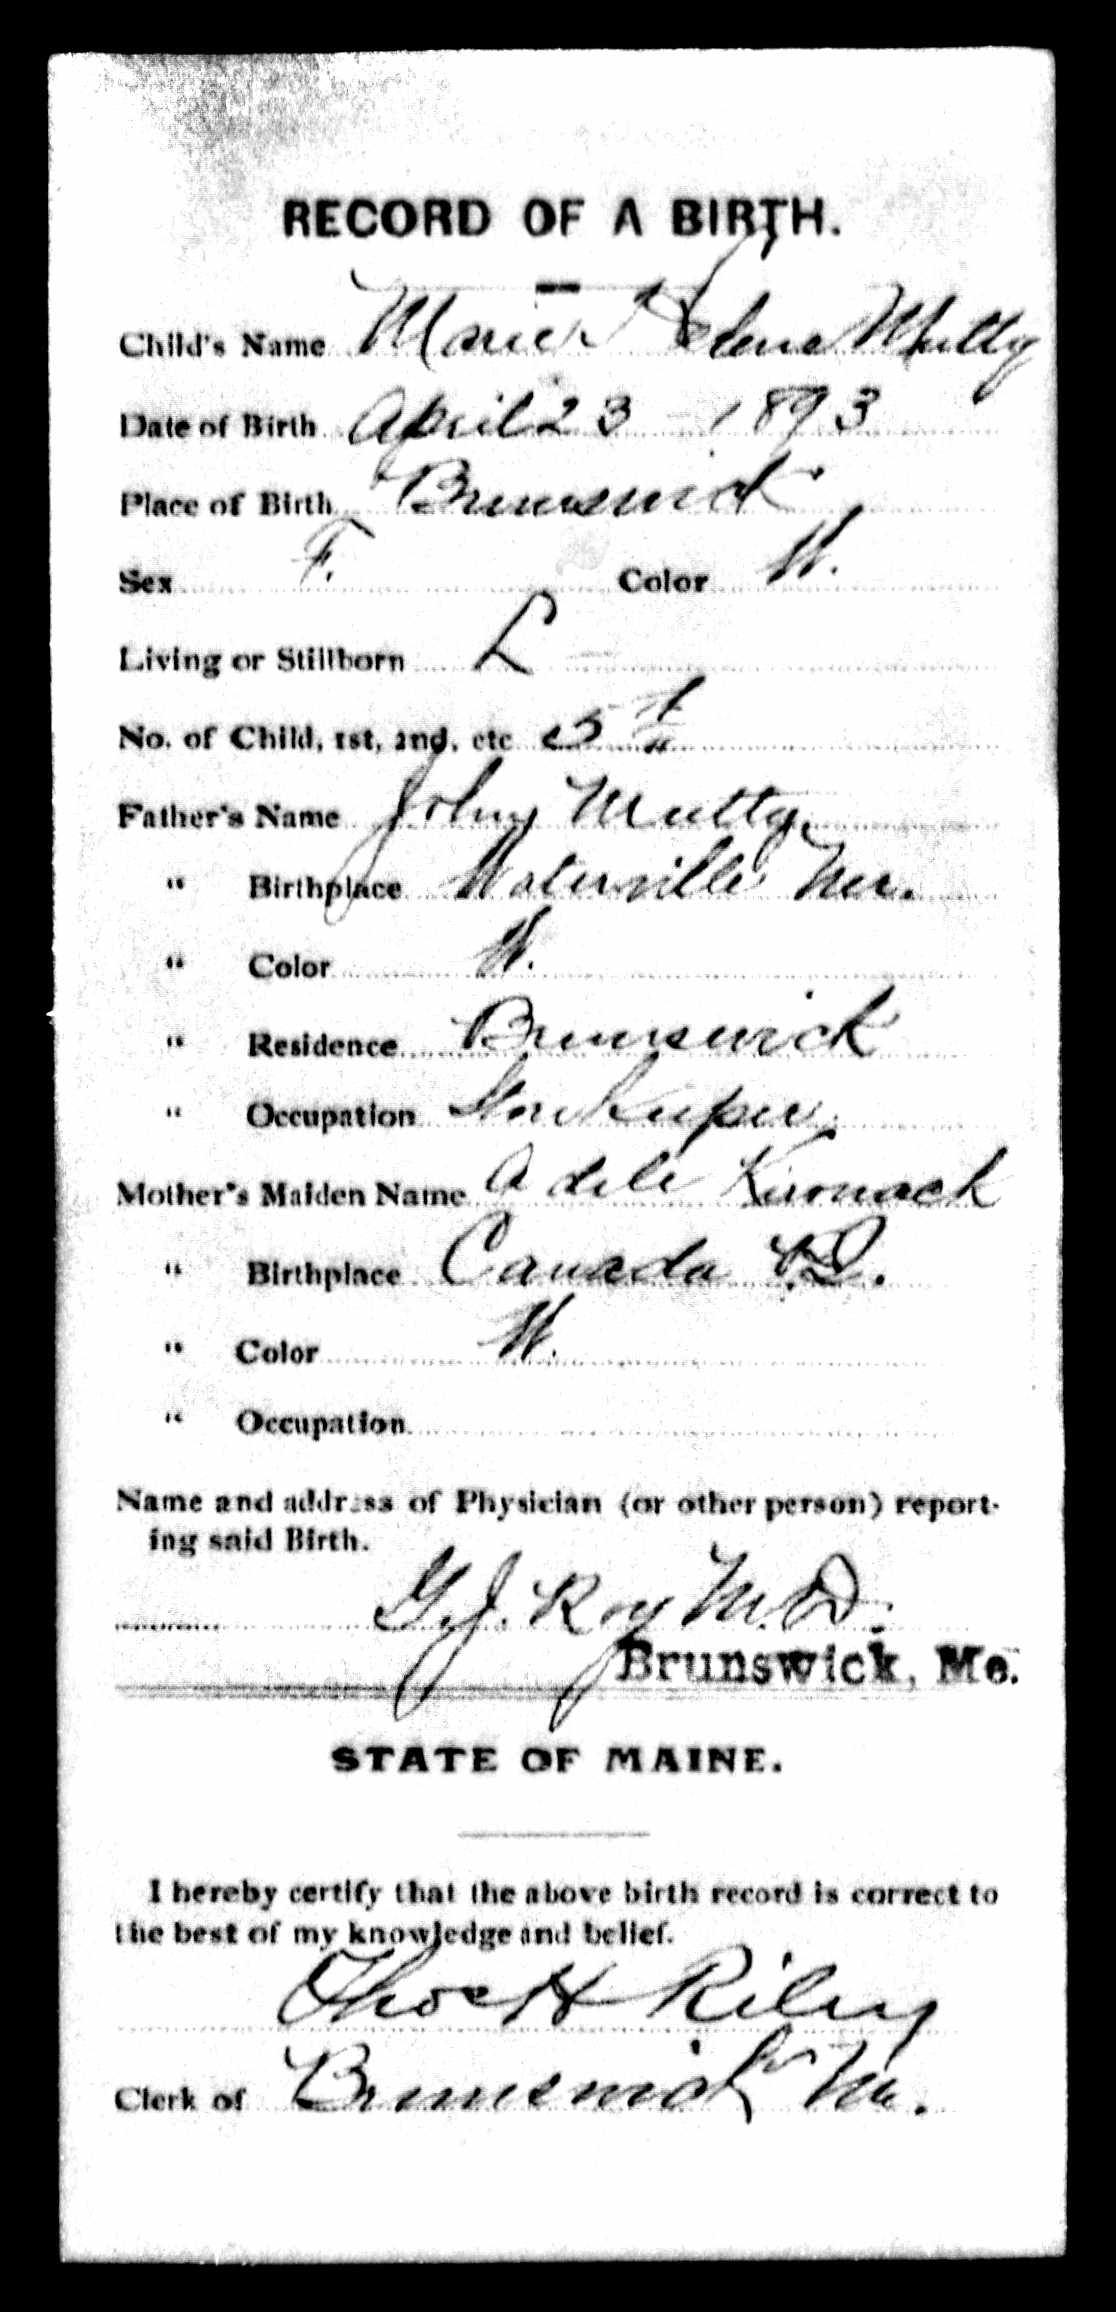 RECORD OF A BIRTH.
Child's Name Marie Helene Mutty
Date of Birth April 23 - 1893
Place of Birth Brunswick
Sex F. Color W.
Living or Stillborn L
No. of Child, 1st, 2nd, etc 5th
Father's Name John Mutty.
" Birthplace Waterville Me.
" Color W.
" Residence Brunswick
" Occupation Storekeeper.
Mother's Maiden Name Adele
" Birthplace Canada P.Q.
" Color W.
" Occupation
Name and address of Physician (or other person) report-
ing said Birth.
G. J. Roy M.D.
Brunswick, Me.
STATE OF MAINE.
I hereby certify that the above birth record is correct to
the best of my knowledge and belief.
Thos H Riley
Clerk of Brunswick Me.